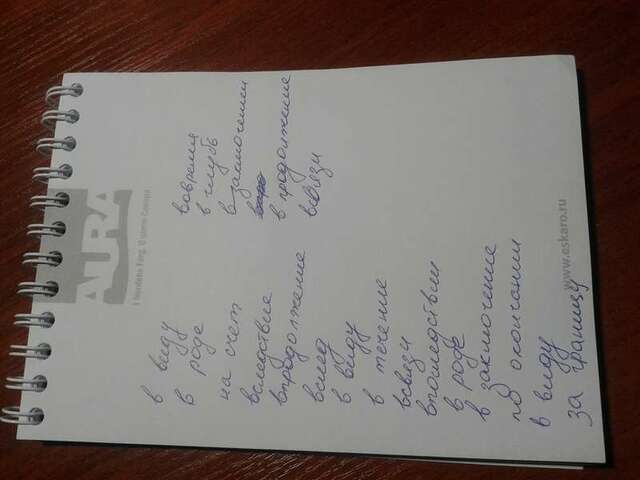 AURA
I Nordens Färg. В цвете Севера
в виду
в роде
на счет
вследствие
впродолжение
вслед
в виду
в течение
всвязи
впоследствии
в роде
в заключение
по окончании
в виду
за границу
вовремя
в глубь
в заключении
в продолжение
всвязи
www.eskaro.ru